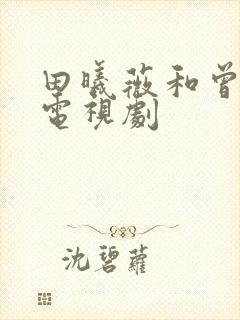 田曦薇和曾
電視劇
沈碧蘿